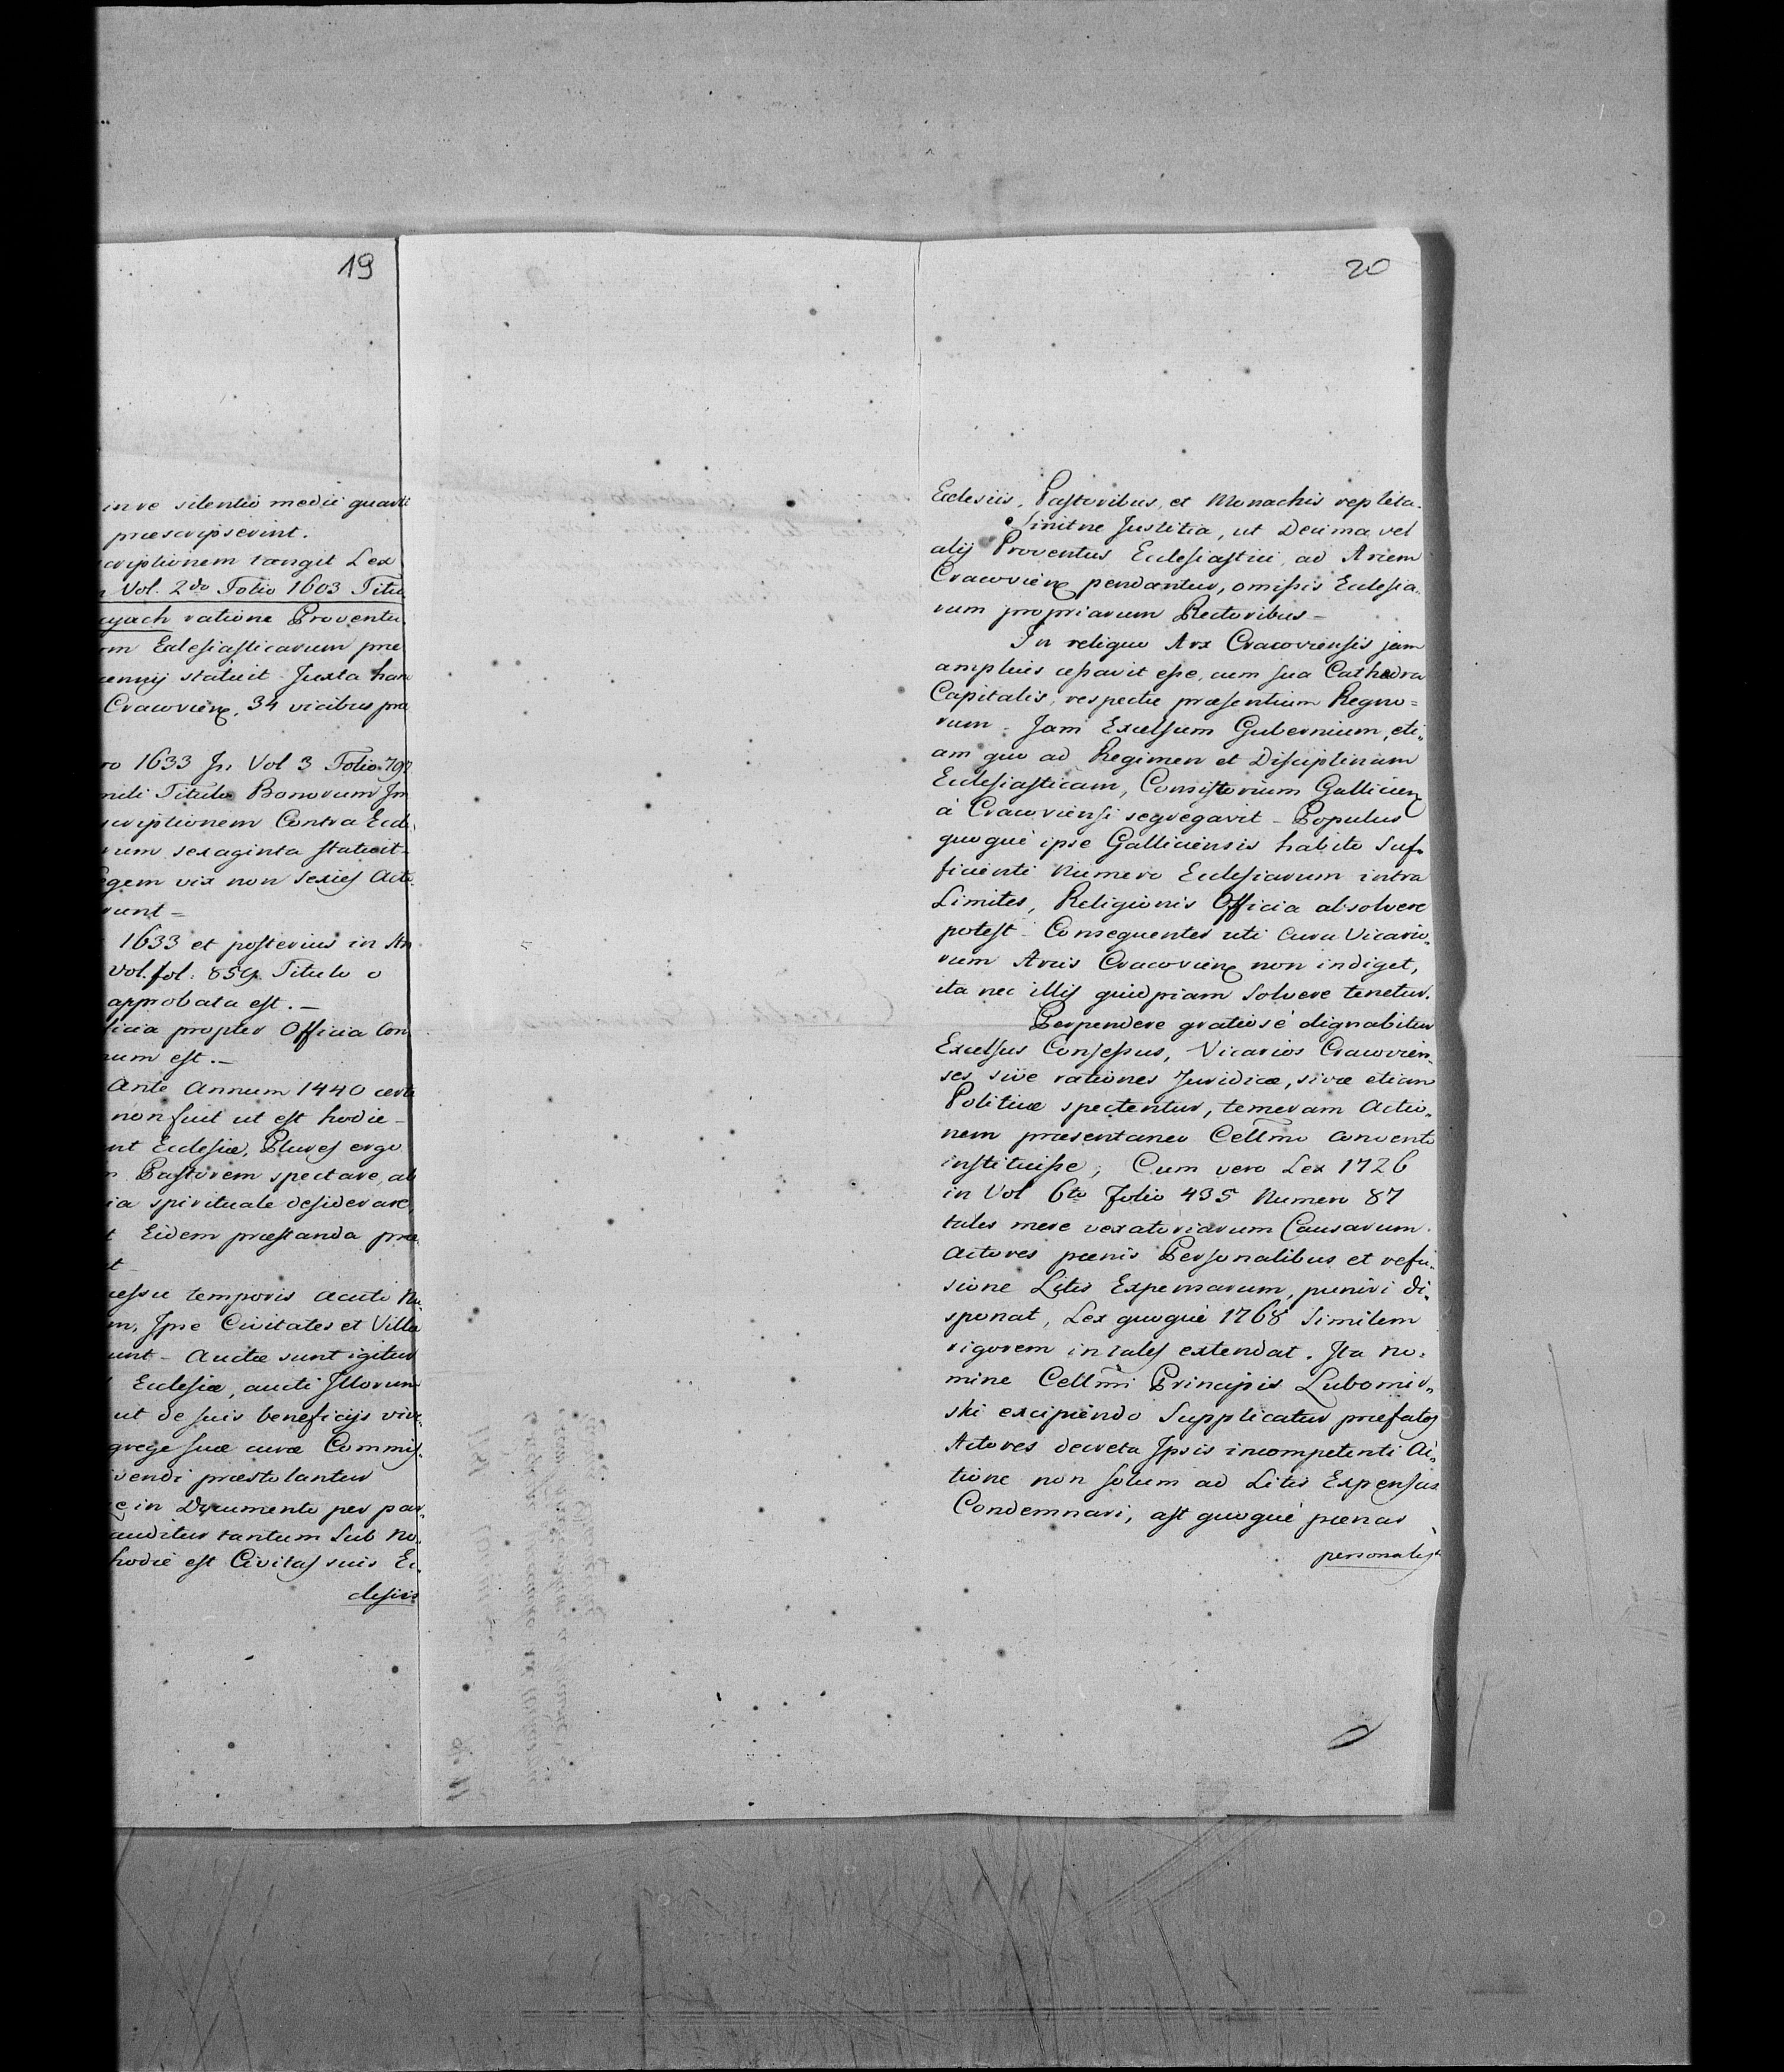 19
in re silentio medii quarti
præscripserint.
criptionem tangit Lex
Vol. 2do Folio 1603 Titu
cyach ratione Proventu
m Ecclesiasticarum præ
ennij statuit Juxta han
Cracovien, 34 vicibus præ
ro 1633 In Vol 3 Folio 792
mili Titulo Bonorum Im
scriptionem Contra Eccl.
rum sexaginta statuit
egem vix non sexies Act.
runt =
1633 et posterius in An
Vol. fol: 859. Titulo o
approbata est. —
licia propter Officia Con
num est. —
Ante Annum 1440 certe
non fuit ut est hodie —
nt Ecclesiæ, Plures ergo
Pastorem spectare, ab
ia spirituale desiderare,
t Eidem præstanda præ
t
cessu temporis aucto Nu.
m, Ipse Civitates et Villa
unt — Auctæ sunt igitur
Ecclesiæ, aucti Illorum
ut de suis beneficijs vive
grege suæ curæ Commis.
vendi præstolantur
e in Documento per par.
auditur tantum sub No.
hodie est Civitas suis Ec.
clesiis
20
Eclesiis, Pastoribus, et Monachis repleta.
Sinit ne Justitia, ut Decima vel
alij Proventus Ecclesiastici ad Arcem
Cracovien pendantur, omissis Ecclesia.
rum propriarum Rectoribus —
In reliquo Arx Cracoviensis jam
amplius cessavit esse, cum sua Cathedra
Capitalis, respectu præsentium Regno=
rum. Jam Excelsum Gubernium, eti,
am quo ad Regimen et Disciplinam
Ecclesiasticam, Consistorium Gallicien
à Cracoviensi segregavit — Populus
quoquè ipse Galliciensis habito Suf=
ficienti Numero Ecclesiarum intra
Limites, Religionis Officia absolvere
potest — Consequenter uti Cura Vicario,
rum Arcis Cracovien non indiget,
ita nec illis quidpiam Solvere tenetur.
Perpendere gratiosè dignabitur
Excelsus Consessus, Vicarios Cracovien,
ses sive rationes Juridicæ, sivæ etiam
Politicæ spectentur, temeram Actio,
nem præsentaneo Cellmo Convento
instituisse; Cum vero Lex 1726
in Vol 6to Folio 435 Numero 87
tales mere vexatoriarum Causarum
Actores pœnis Personalibus et refu,
sione Litis Expensarum, puniri di,
sponat, Lex quoquè 1768 Similem
rigorem in tales extendat. Ita No=
mine Cellmi Principis Lubomir,
ski excipiendo Supplicatur præfatos
Actores decreta Ipsis incompetenti Ac,
tione non solum ad Litis Expensas
Condemnari, ast quoquè pœnas
personales